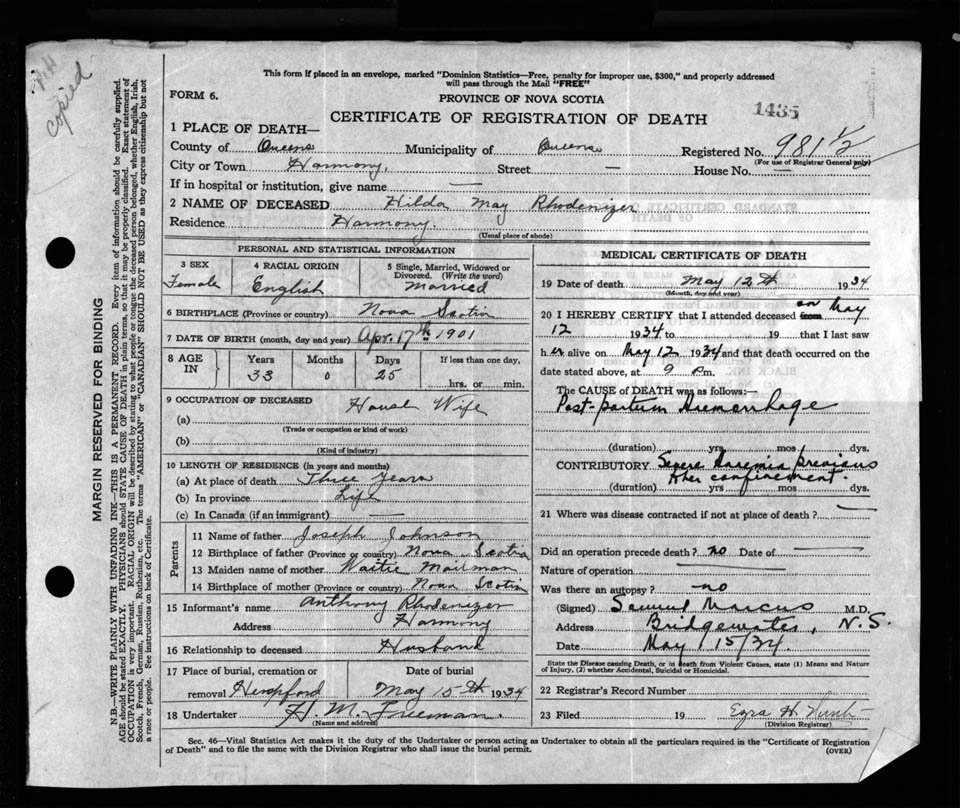 copied
This form if placed in an envelope, marked "Dominion Statistics—Free, penalty for improper use, $300," and properly addressed
will pass through the Mail "FREE"
FORM 6.
PROVINCE OF NOVA SCOTIA
1435
CERTIFICATE OF REGISTRATION OF DEATH
1 PLACE OF DEATH—
County of Queens Municipality of Queens Registered No. 981 1/2
(For use of Registrar General only)
City or Town Harmony, Street — House No. —
If in hospital or institution, give name —
2 NAME OF DECEASED Hilda May Rhodenizer
Residence Harmony.
(Usual place of abode)
PERSONAL AND STATISTICAL INFORMATION
3 SEX 4 RACIAL ORIGIN 5 Single, Married, Widowed or
Divorced. (Write the word)
Female English Married
6 BIRTHPLACE (Province or country) Nova Scotia
7 DATE OF BIRTH (month, day and year) Apr. 17th 1901
8 AGE IN Years Months Days If less than one day,
33 0 25 hrs. or min.
9 OCCUPATION OF DECEASED House Wife
(a)
(Trade or occupation or kind of work)
(b)
(Kind of industry)
10 LENGTH OF RESIDENCE (in years and months)
(a) At place of death Three years
(b) In province Life
(c) In Canada (if an immigrant) —
Parents
11 Name of father Joseph Johnson
12 Birthplace of father (Province or country) Nova Scotia
13 Maiden name of mother Waitie Mailman
14 Birthplace of mother (Province or country) Nova Scotia
15 Informant's name Anthony Rhodenizer
Address Harmony
16 Relationship to deceased Husband
17 Place of burial, cremation or Date of burial
removal Hempford May 15th 1934
18 Undertaker H. M. Freeman.
(Name and address)
MEDICAL CERTIFICATE OF DEATH
19 Date of death May 12th 1934
(Month, day and year)
20 I HEREBY CERTIFY that I attended deceased from on May
12 1934 to 19 that I last saw
her alive on May 12 1934 and that death occurred on the
date stated above, at 9 P.m.
The CAUSE of DEATH was as follows:—
Post-partum Haemorrhage
(duration) yrs. mos. dys.
CONTRIBUTORY Severe Anaemia previous
to her confinement.
(duration) yrs. mos. dys.
21 Where was disease contracted if not at place of death? —
Did an operation precede death? no Date of —
Nature of operation —
Was there an autopsy? no
(Signed) Samuel Marcus M.D.
Address Bridgewater, N.S.
Date May 15/34.
State the Disease causing Death, or in death from Violent Causes, state (1) Means and Nature
of Injury, (2) whether Accidental, Suicidal or Homicidal.
22 Registrar's Record Number
23 Filed 19 Ezra H.
(Division Registrar)
Sec. 46—Vital Statistics Act makes it the duty of the Undertaker or person acting as Undertaker to obtain all the particulars required in the "Certificate of Registration
of Death" and to file the same with the Division Registrar who shall issue the burial permit.
(OVER)
MARGIN RESERVED FOR BINDING
N.B.—WRITE PLAINLY WITH UNFADING INK—THIS IS A PERMANENT RECORD. Every item of information should be carefully supplied.
AGE should be stated EXACTLY. PHYSICIANS should STATE CAUSE OF DEATH in plain terms, so that it may be properly classified. Exact statement of
OCCUPATION is very important. RACIAL ORIGIN will be described by stating to what people or tongue the deceased person belonged, whether English, Irish,
Scotch, French, German, Russian, Ruthenian, etc. The terms "AMERICAN" or "CANADIAN" SHOULD NOT BE USED as they express citizenship but not
a race or people. See instructions on back of Certificate.